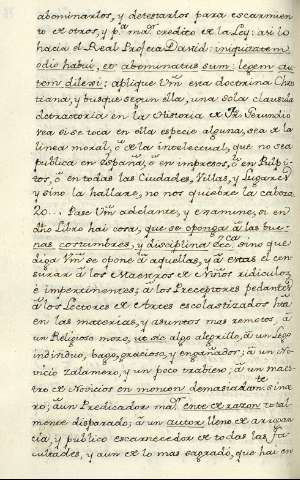 abominarlos, y detestarlos para escarmien
to de otros, y p.ª maᵒʳ credito de la Ley: asi lo
hacia el Real Profeta David: iniquitatem
odio habui, et abominatus sum: legem au
tem dilexi: aplique Vm esta doctrina Chris
tiana, y busque segun ella, una sola clausula
detractoria en la Historia de Fr. Gerundio
vea si se toca en ella especie alguna, sea de la
linea moral, ô de la intelectual, que no sea
publica en España, ô en impresos, ô en Pulpi
tos, ô en todas las Ciudades, Villas, y Lugares
y sino la hallare, no nos quiebre la cabeza
20... Pase Vm adelante, y examine, si en
dho Libro hai cosa, que se oponga â las bue-
nas costumbres, y disciplina ecc.ca sino que
diga Vm se opone â aquellas, y â estas el cen
surar â los Maestros de Niños ridiculos
è impertinentes; â los Preceptores pedantes
â los Lectores de Artes escolastizados hta
en las materias, y asuntos mas remotos, â
un Religioso mozo, ut sic algo alegrillo, â un Lego
individuo, bago, gracioso, y engañador; â un No-
vicio zalamero, y un poco travieso; â un maes-
tro de Novicios en monton demasiadamte. since
ro; â un Predicador maᵒʳ. ente de razon total-
mente disparado; â un autor lleno de arrogan
cia, y publico escarnecedor de todas las fa
cultades, y aun de lo mas sagrado, que hai en